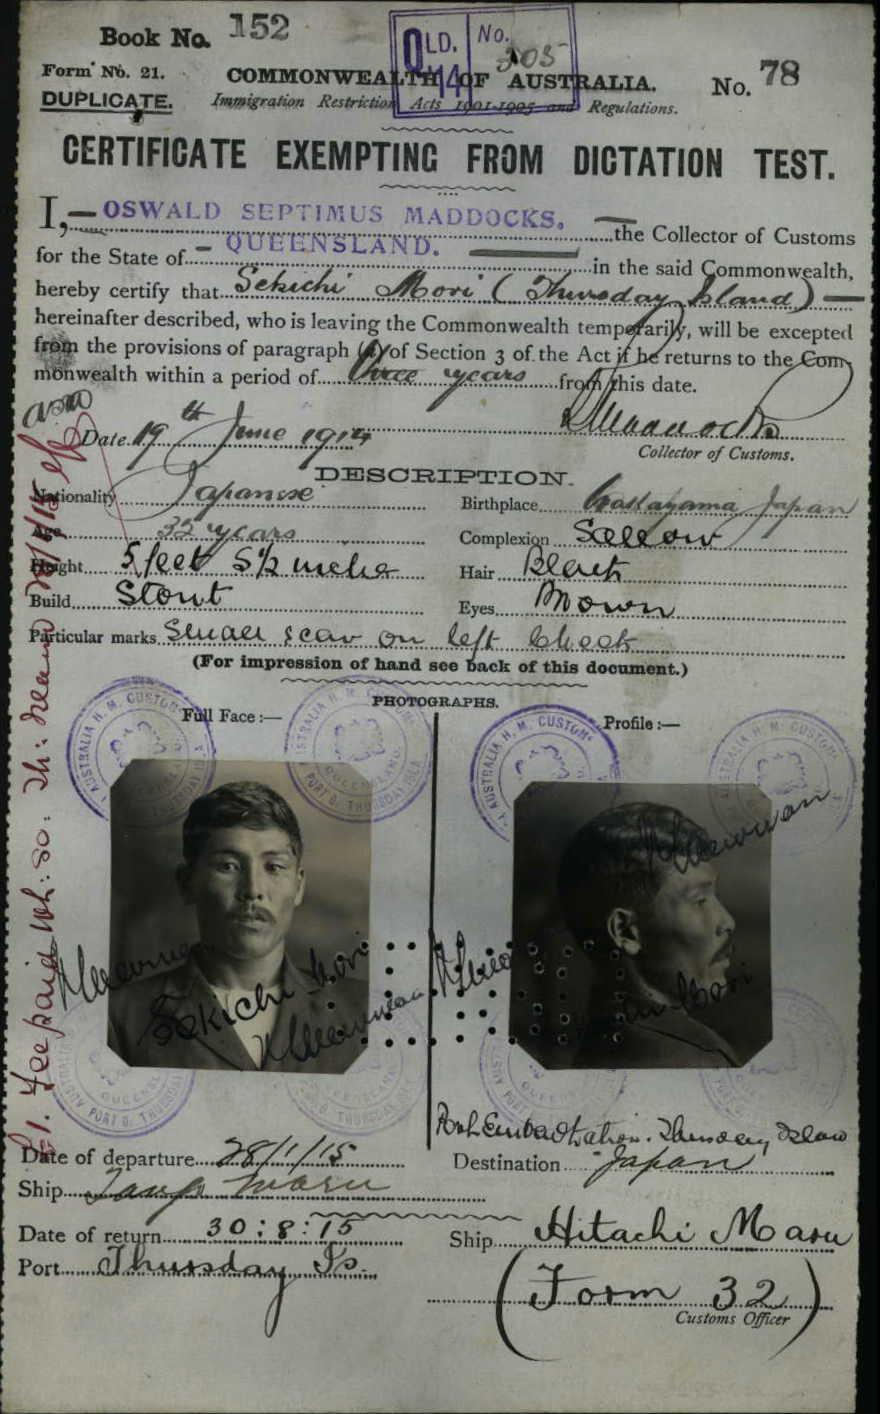 Book No. 152
QLD. 14 No. 305
Form No. 21.
COMMONWEALTH OF AUSTRALIA.
No. 78
DUPLICATE.
Immigration Restriction Acts 1901-1905 and Regulations.
CERTIFICATE EXEMPTING FROM DICTATION TEST.
I, OSWALD SEPTIMUS MADDOCKS, the Collector of Customs
for the State of QUEENSLAND. in the said Commonwealth,
hereby certify that Sekichi Mori (Thursday Island)
hereinafter described, who is leaving the Commonwealth temporarily, will be excepted
from the provisions of paragraph (a) of Section 3 of the Act if he returns to the Com-
monwealth within a period of three years from this date.
Date 19th June 1914
Collector of Customs.
DESCRIPTION.
Nationality Japanese Birthplace Wakayama Japan
Age 35 years Complexion Sallow
Height 5 feet 5½ inches Hair Black
Build Stout Eyes Brown
Particular marks Small scar on left cheek
(For impression of hand see back of this document.)
PHOTOGRAPHS.
Full Face :— Profile :—
AUSTRALIA H. M. CUSTOMS
QUEENSLAND
PORT O. THURSDAY ISLA
Sekichi Mori
Mori
£1. Fee paid
Port Embarkation. Thursday Island
Date of departure 28/1/15 Destination Japan
Ship Maru
Date of return 30:8:15 Ship Hitachi Maru
Port Thursday Is.
(Form 32)
Customs Officer